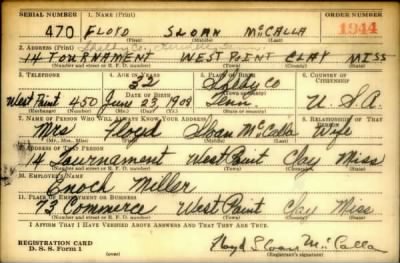 SERIAL NUMBER 1. NAME (Print) ORDER NUMBER
470 FLOYD SLOAN McCALLA 1944
(First) (Middle) (Last)
2. ADDRESS (Print)
14 TOURNAMENT WEST POINT CLAY MISS
(Number and street or R. F. D. number) (Town) (County) (State)
3. TELEPHONE 4. AGE IN YEARS 5. PLACE OF BIRTH 6. COUNTRY OF CITIZENSHIP
32 Shelby Co
West Point 450 June 23, 1908 Tenn. U. S. A.
(Exchange) (Number) (Mo.) (Day) (Yr.) (State or country)
7. NAME OF PERSON WHO WILL ALWAYS KNOW YOUR ADDRESS 8. RELATIONSHIP OF THAT PERSON
Mrs Floyd Sloan McCalla Wife
(Mr., Mrs., Miss) (First) (Middle) (Last)
9. ADDRESS OF THAT PERSON
14 Tournament West Point Clay Miss
(Number and street or R. F. D. number) (Town) (County) (State)
10. EMPLOYER'S NAME
Enoch Miller
11. PLACE OF EMPLOYMENT OR BUSINESS
73 Commerce West Point Clay Miss
(Number and street or R. F. D. number) (Town) (County) (State)
I AFFIRM THAT I HAVE VERIFIED ABOVE ANSWERS AND THAT THEY ARE TRUE.
REGISTRATION CARD
D. S. S. Form 1 (over) Floyd Sloan McCalla
(Registrant's signature)